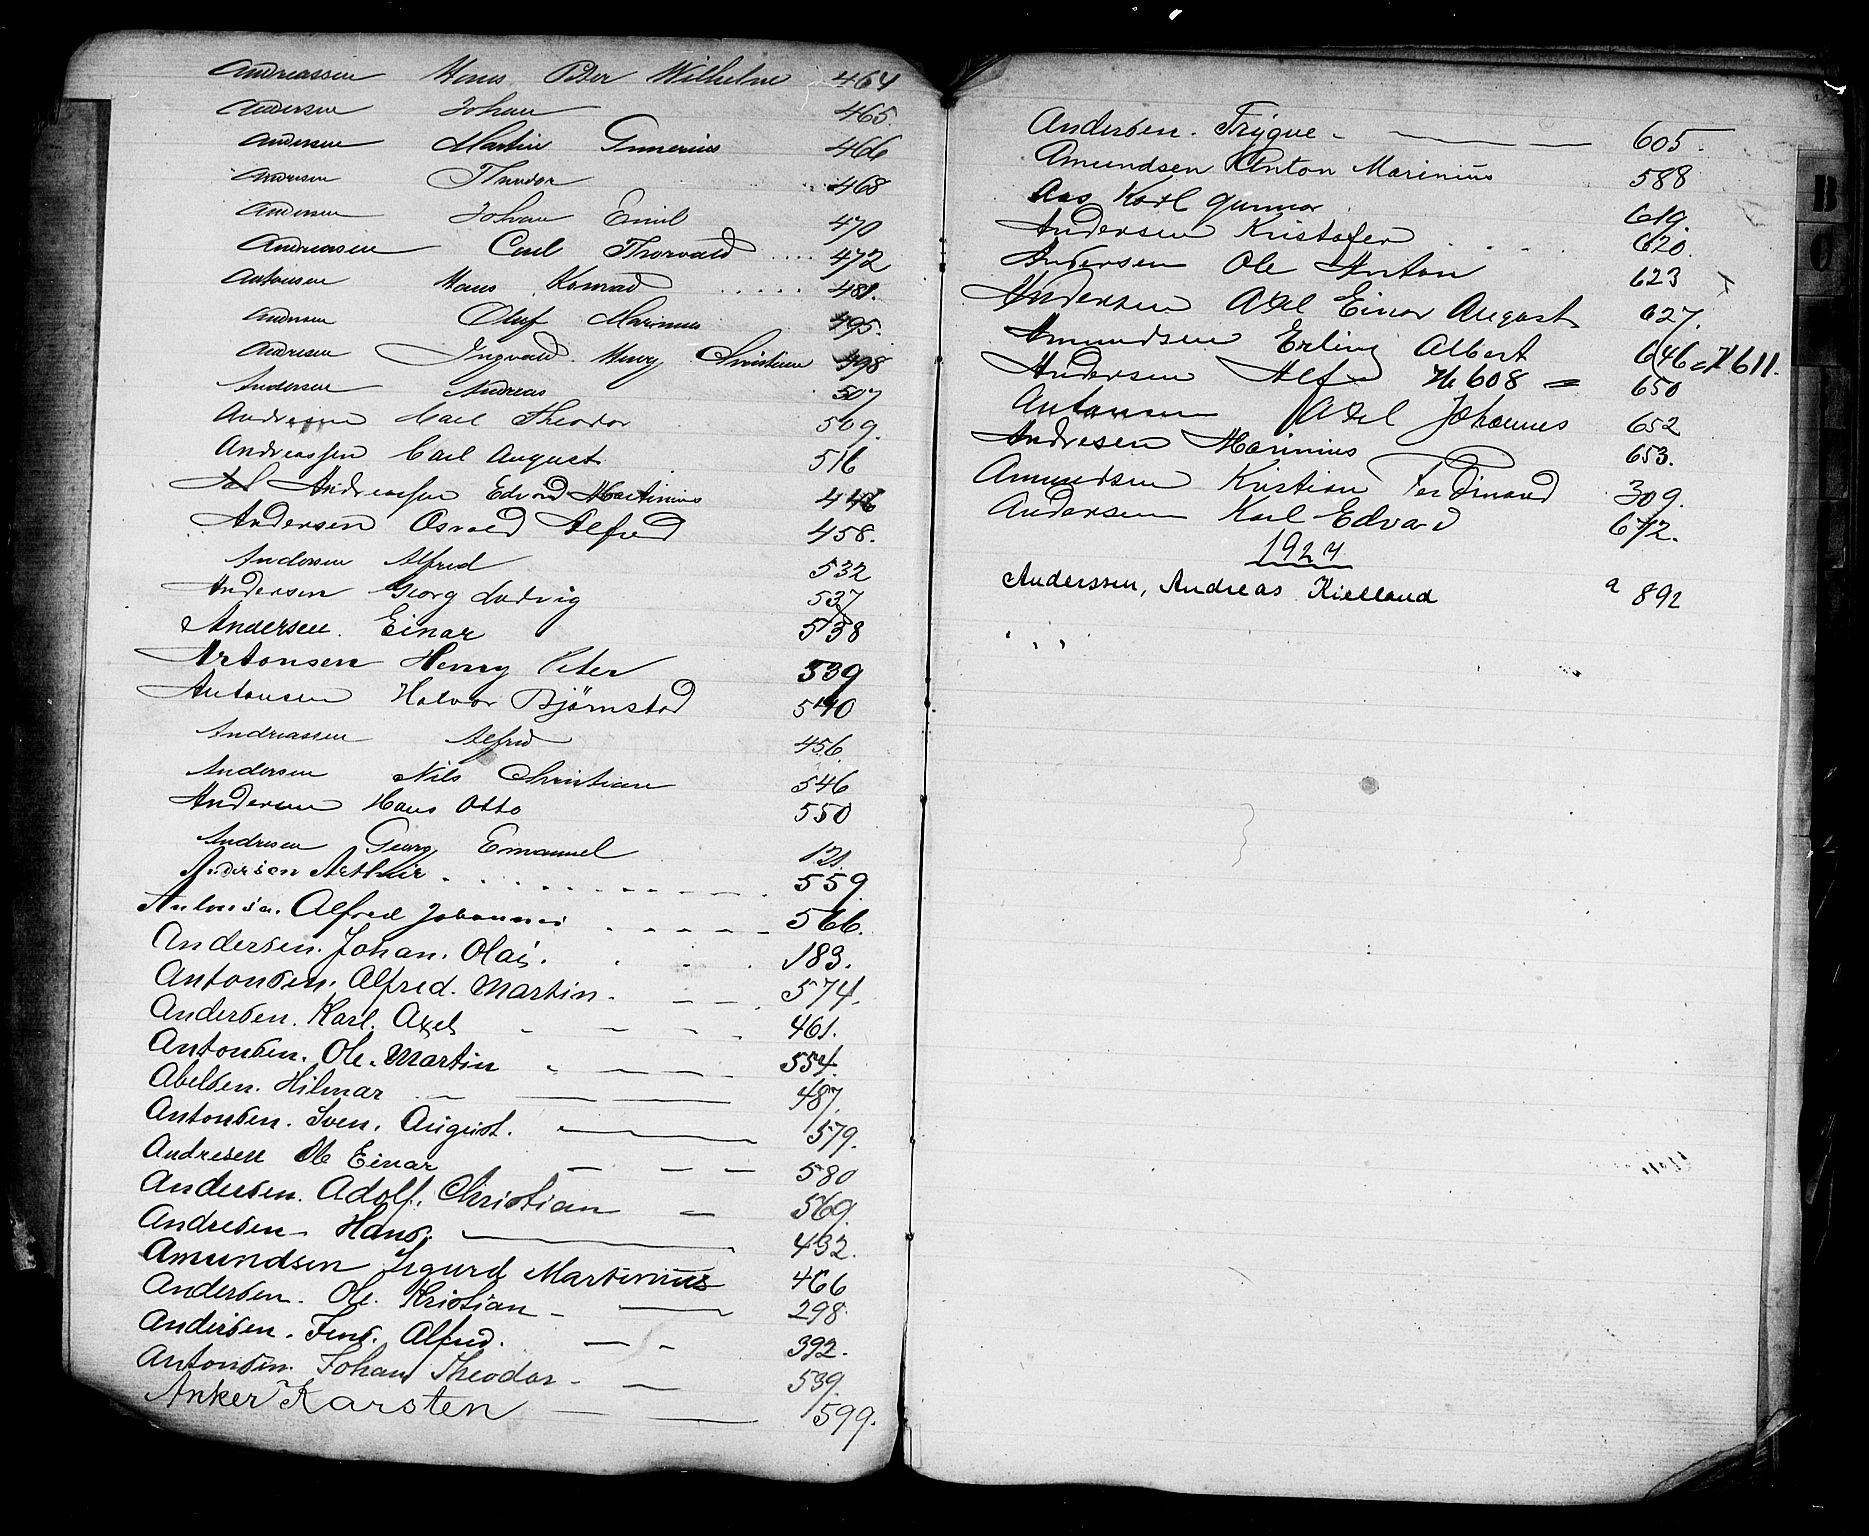 Andreassen Hans Peter Wilhelm 464
Andersen Johan 465.
Andersen Martin Gunerius 466
Andersen Theodor 468
Andersen Johan Emil 470
Andreasen Carl Thorvald .... 472
Antonsen Hans Konrad ..... 481.
Andersen Oluf Marinius 495.
Andresen Ingvald Henry Christian 498
Andersen Andreas 507
Andresen Carl Theodor 509.
Andreassen Carl August 516
Andreassen Edvard Martinius 446
Andersen Osvald Alfred 458.
Andersen Alfred 532
Andersen Georg Ludvig 537
Andersen. Einar 538
Antonsen Henry Peter 539
Antonsen Halvor Bjørnstad 540
Andreassen Alfred 456.
Andersen Nils Christian 546
Andersen Hans Otto 550
Andresen Georg Emanuel 121.
Andersen Arthur. 559
Antonsen. Alfred Johannes 566.
Andersen. Johan. Olai. 183.
Antonsen. Alfred. Martin. 574.
Andersen. Karl. Axel 461.
Antonsen. Ole. Martin 554.
Abelsen. Hilmar 487.
Antonsen. Sven. August. 579.
Andresen Ole Einar 580
Andersen. Adolf. Christian 569.
Andresen Hans. 432.
Amundsen Sigurd Martinius 466
Andersen. Ole. Kristian 298.
Andersen. Jens. Alfred. 392.
Antonsen. Johan Theodor 539.
Anker Karsten 599.
Andersen. Trygve 605.
Amundsen Anton Marinius 588
Aas Karl Gunnar 619.
Andersen Kristofer 620.
Andersen Ole Anton 623
Andersen Axel Einar August 627.
Amundsen Erling Albert 646 H 611.
Andersen Alf H 608 = 650
Antonsen Axel Johannes 652
Andresen Marinius 653.
Amundsen Kristian Ferdinand 309.
Andersen Karl Edvard 672.
1924
Anderssen, Andreas Kielland a 892
B